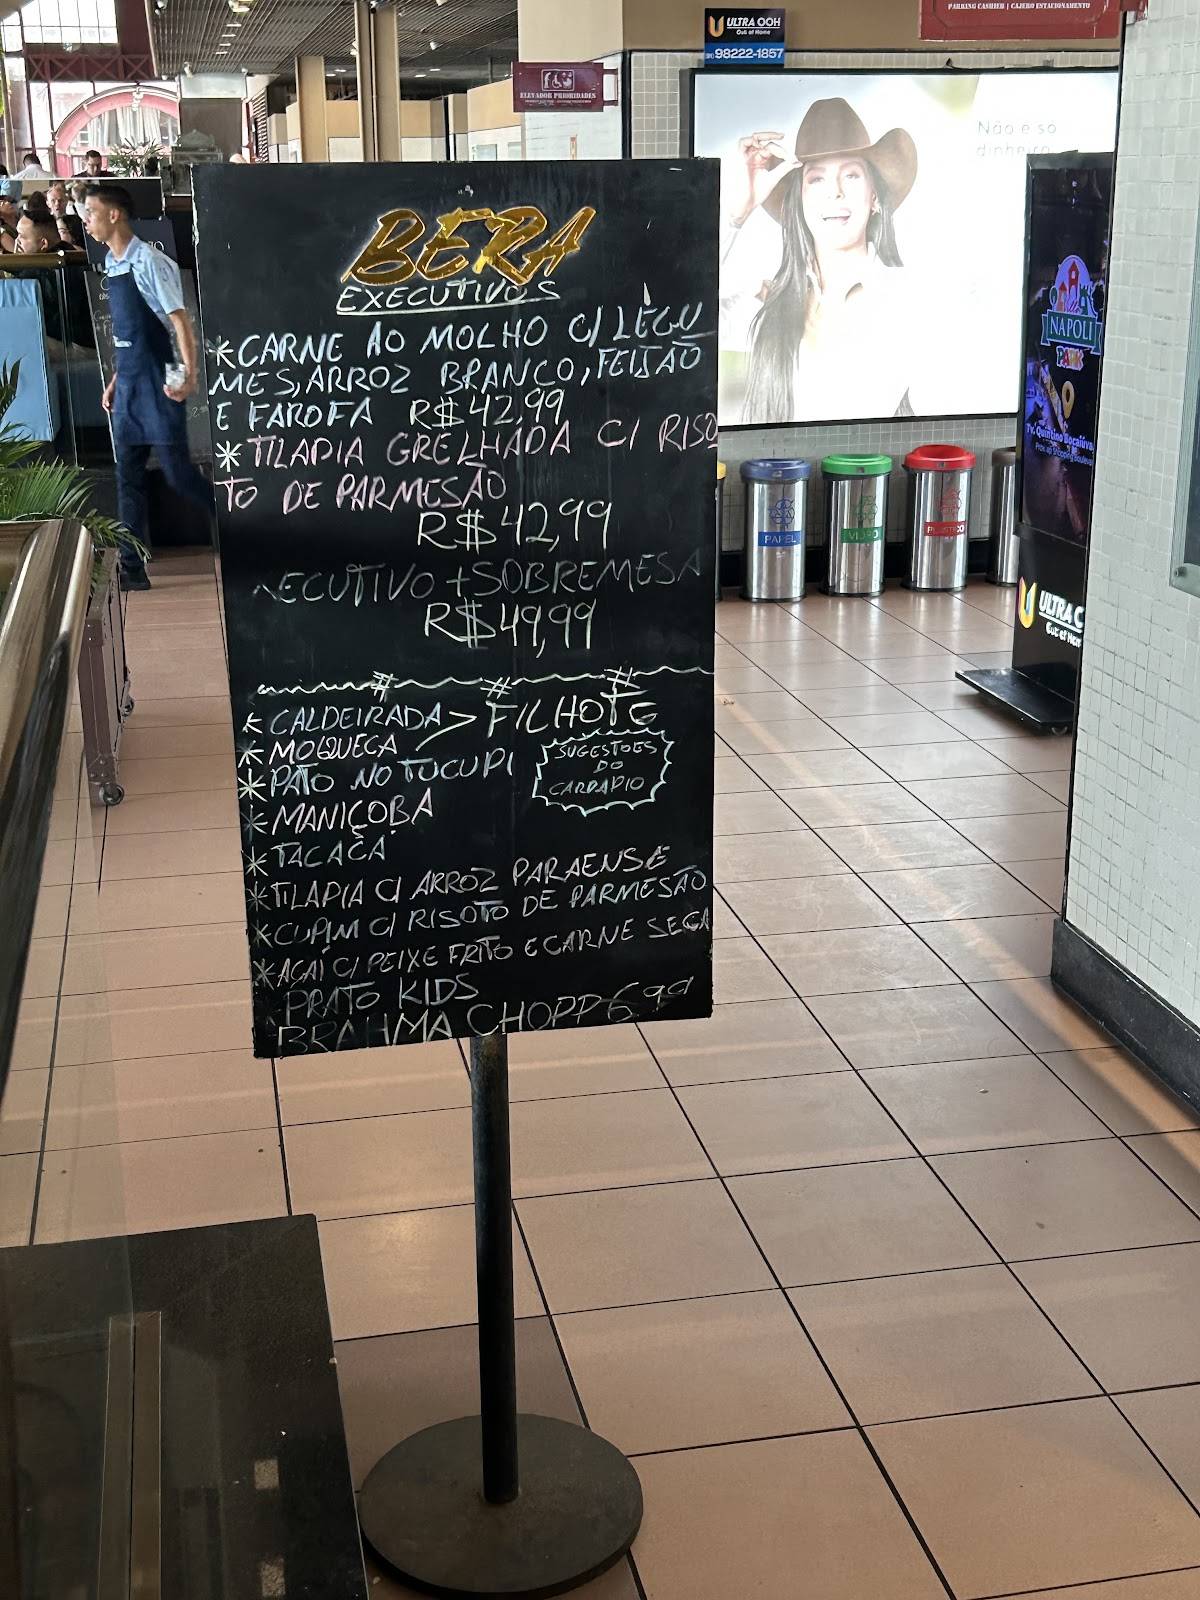 PARKING CASHIER | CAJERO ESTACIONAMENTO
ULTRA OOH
Out of Home
98222-1857
ELEVADOR PRIORIDADES
Não é só
dinheiro
BERA
EXECUTIVOS
*CARNE AO MOLHO C/ LEGU
MES, ARROZ BRANCO, FEIJÃO
E FAROFA R$42,99
*TILAPIA GRELHADA C/ RISO
TO DE PARMESÃO
R$42,99
ECUTIVO + SOBREMESA
R$49,99
* CALDEIRADA > FILHOTE
* MOQUECA
* PATO NO TUCUPI
SUGESTOES
DO
CARDAPIO
* MANIÇOBA
* TACACÁ
*TILAPIA C/ ARROZ PARAENSE
*CUPIM C/ RISOTO DE PARMESÃO
*AÇAÍ C/ PEIXE FRITO E CARNE SECA
PRATO KIDS
BRAHMA CHOPP 6,99
NAPOLI
PARK
Tv. Quintino Bocaiúva
PAPEL
VIDRO
PLÁSTICO
ULTRA O
Out of Hom